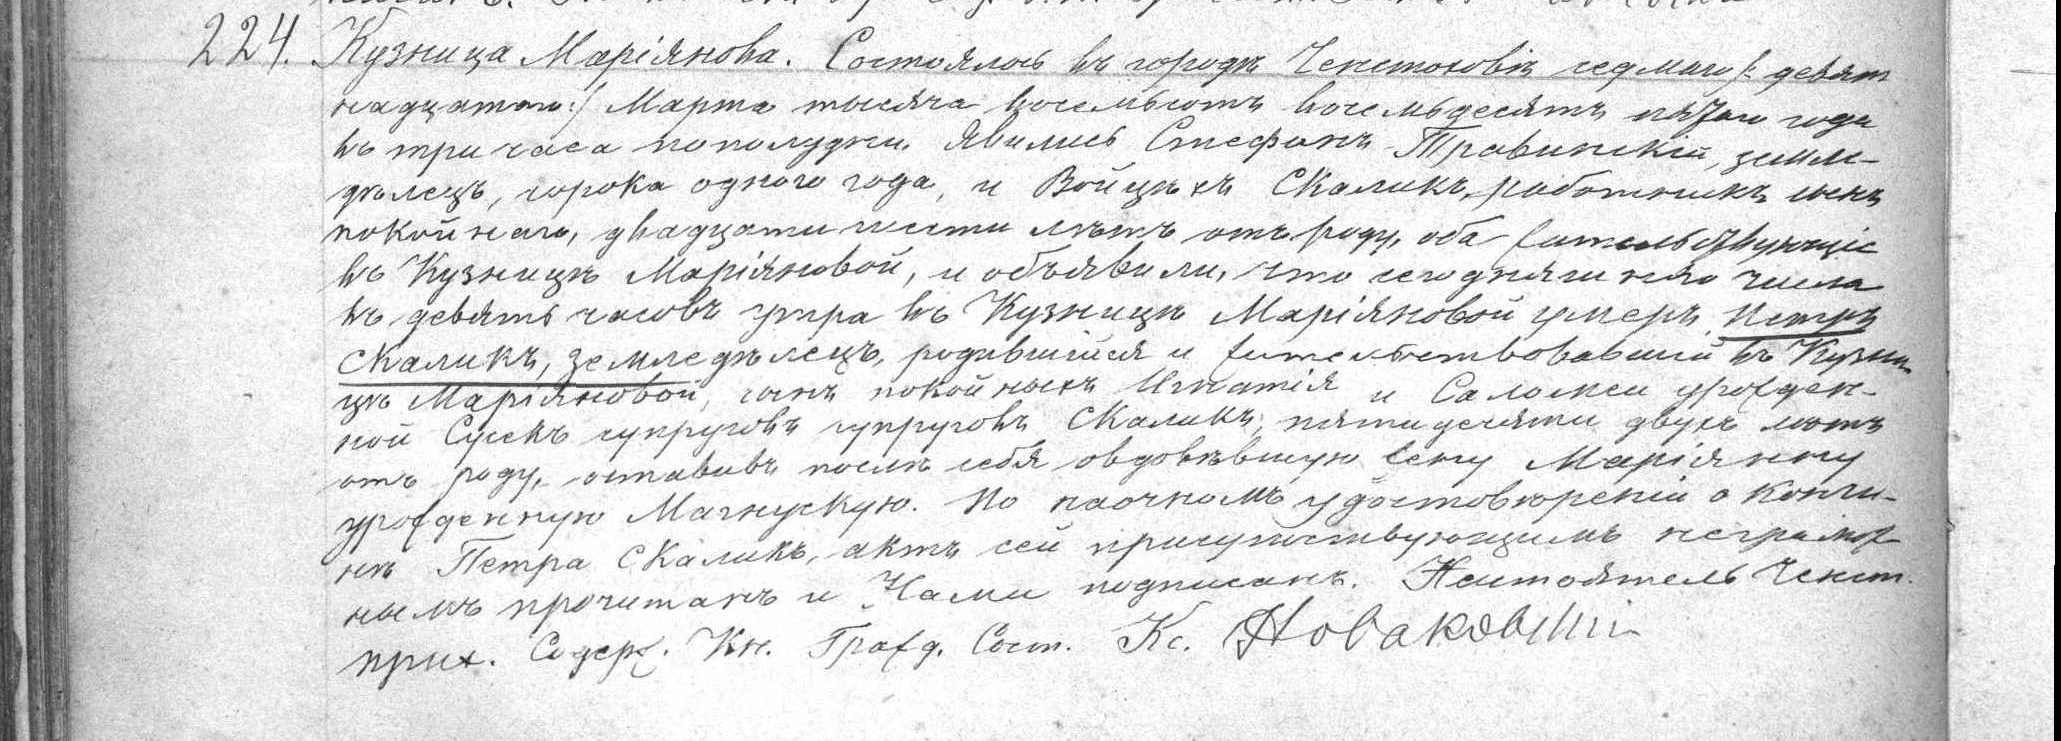 224. Кузница Маріянова. Состоялось въ городѣ Ченстоховѣ седмаго /: девят
надцатаго :/ Марта тысяча восемьсотъ восемьдесятъ пятаго года
въ три часа пополудни. Явились Стефанъ Травинскій, земле-
дѣлецъ, сорока одного года, и Войцѣхъ Скаликъ, работникъ сынъ
покойнаго, двадцати шести лѣтъ отъ роду, оба жительствующіе
въ Кузницѣ Маріяновой, и объявили, что сегодняшняго числа
въ девять часовъ утра въ Кузницѣ Маріяновой умеръ Петръ
Скаликъ, земледѣлецъ, родившійся и жительствовавшій въ Кузни
цѣ Маріяновой, сынъ покойныхъ Игнатія и Саломеи урожден-
ной Сусекъ супруговъ супруговъ Скаликъ, пятидесяти двухъ лѣтъ
отъ роду, оставивъ послѣ себя овдовѣвшую жену Маріянну
урожденную Магнускую. По наочномъ удостовѣреніи о кончи-
нѣ Петра Скаликъ, актъ сей присутствующимъ неграмот
нымъ прочитанъ и Нами подписанъ. Настоятель Ченст.
прих. Содерж. Кн. Гражд. Сост. Кс. Новаковскій